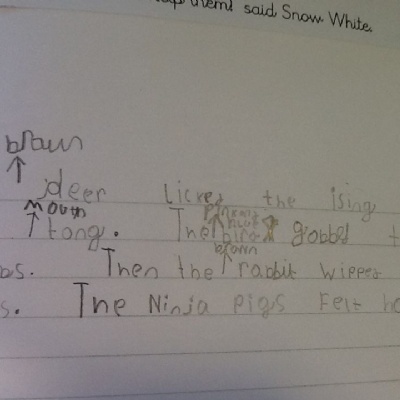 them! said Snow White.
brown
deer licked the ising
mouth
tong. The bird gobbel
brown
Then the rabbit wippet
s. The Ninja Pigs Felt